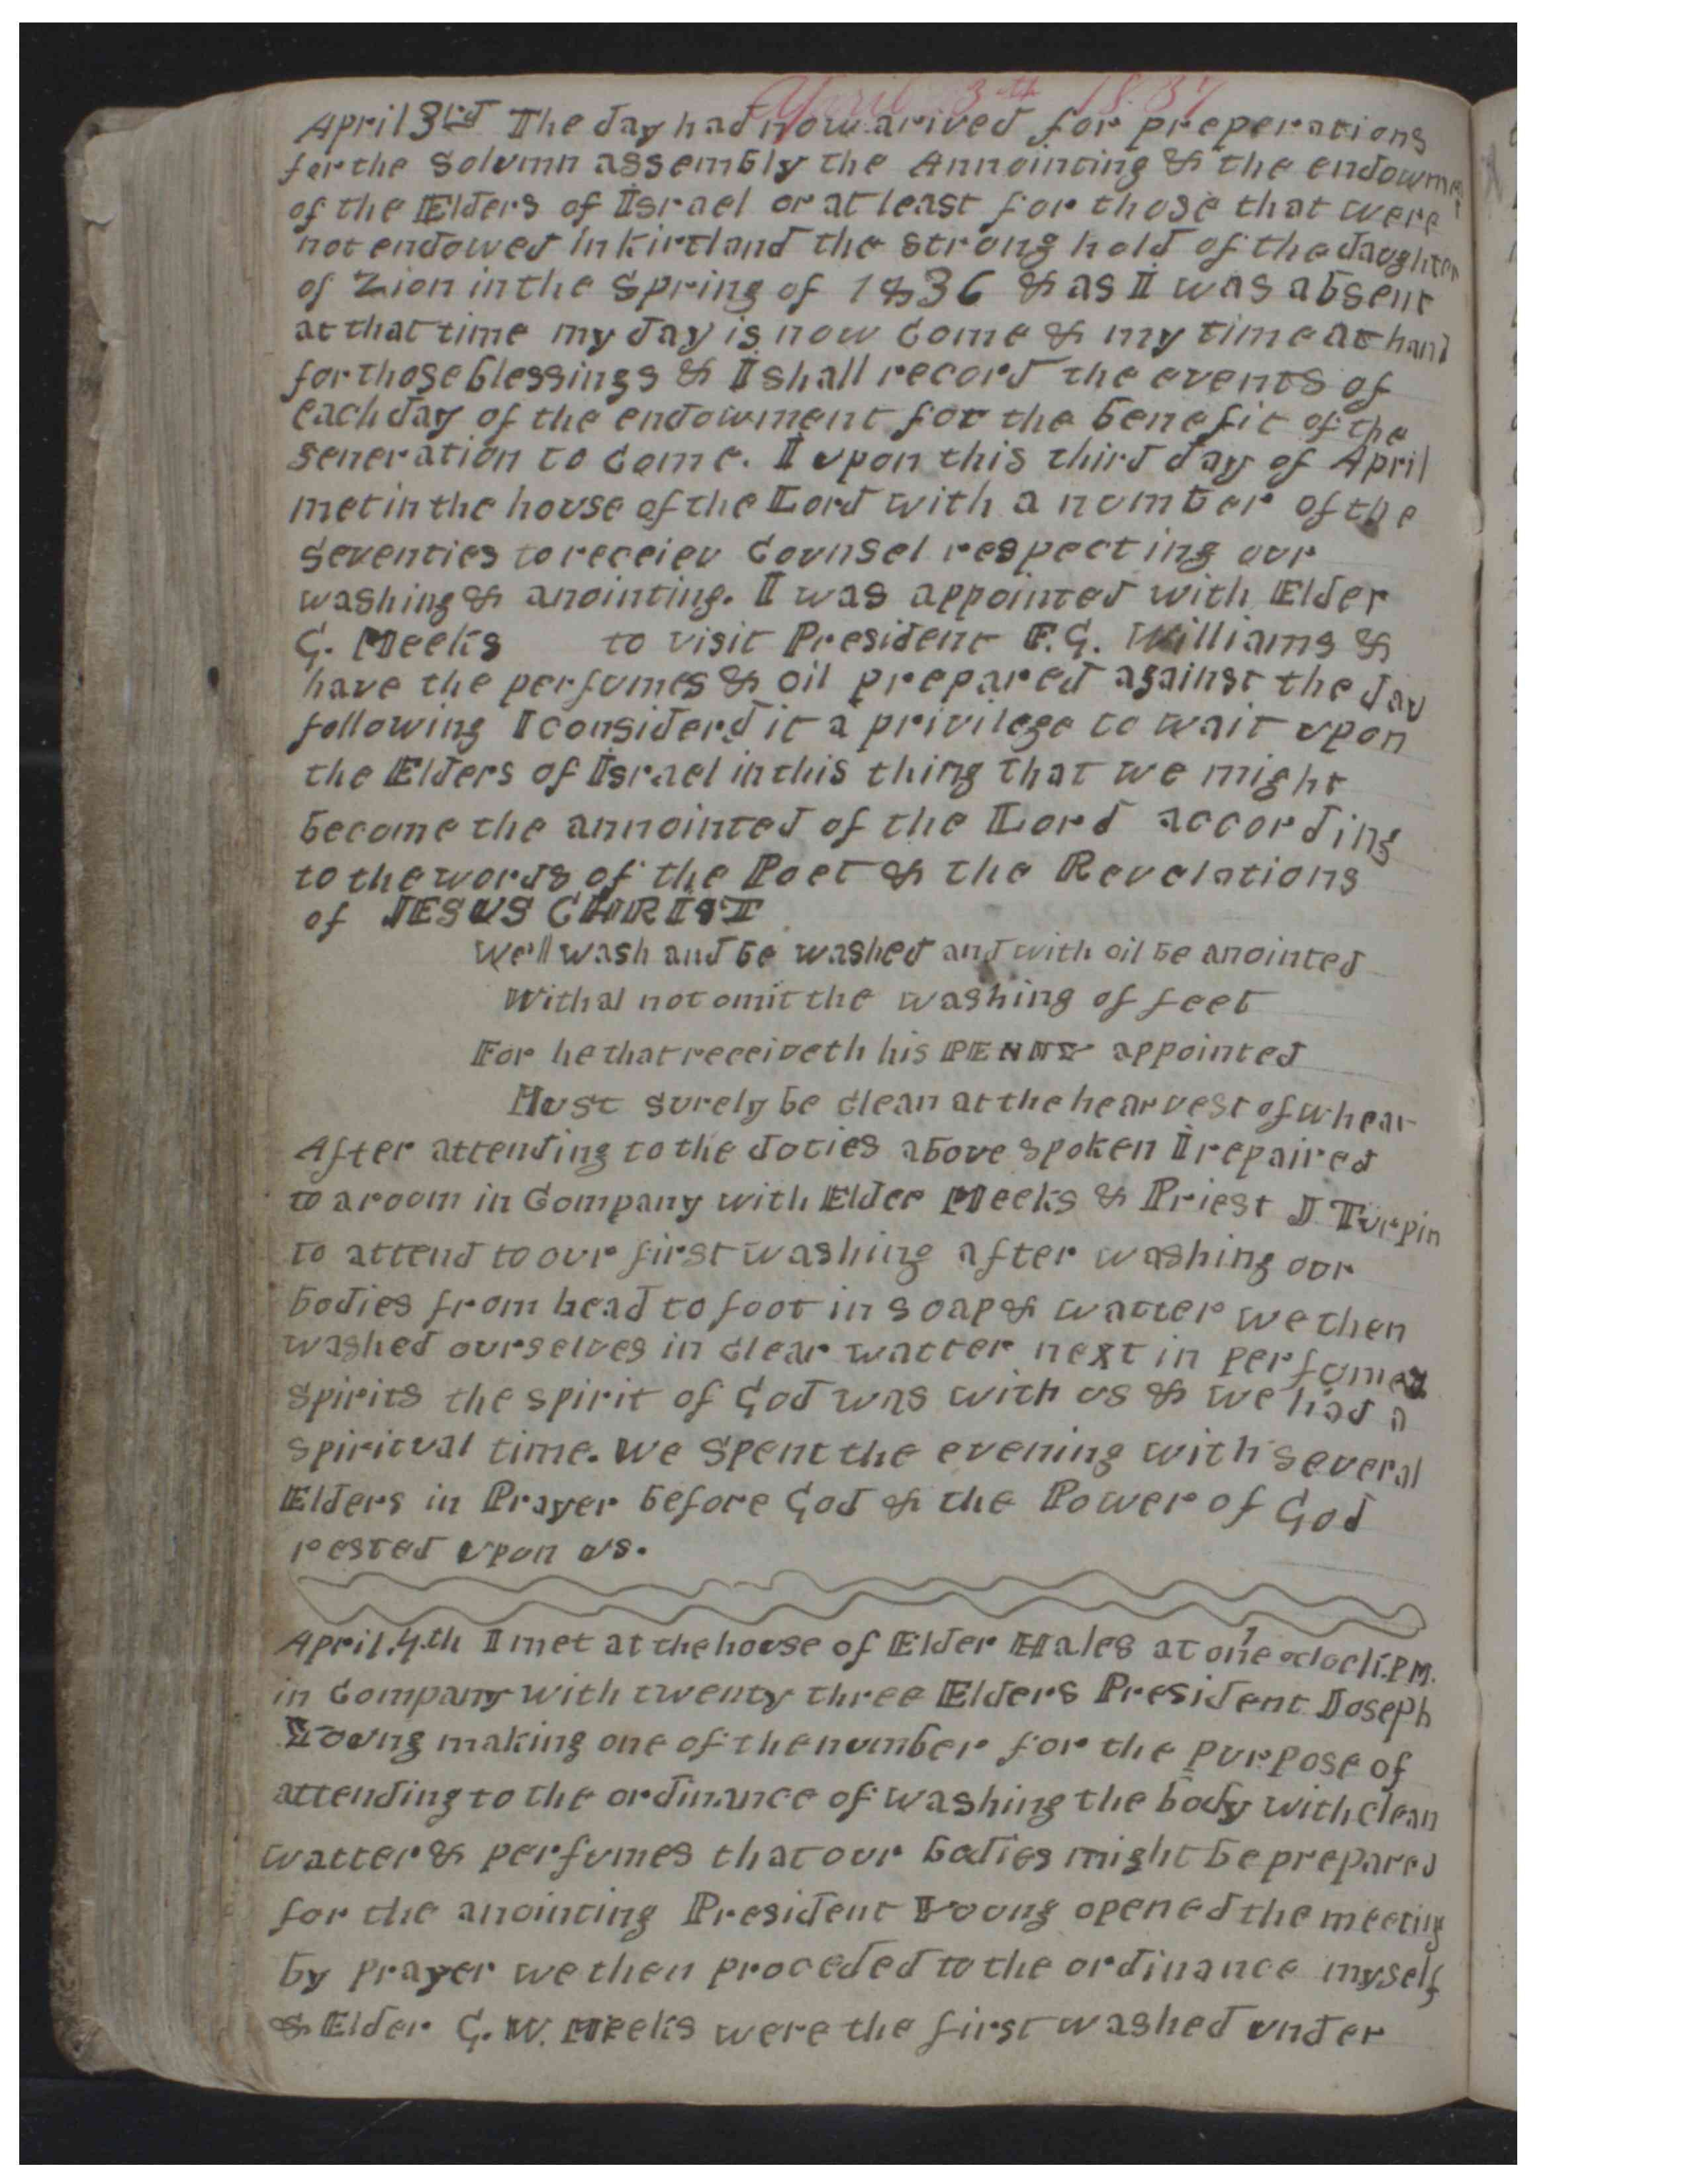 April 3th 1837
April 3rd The day had now arived for preperations
for the Solumn assembly the Annointing & the endowment
of the Elders of Israel or at least for those that were
not endowed in Kirtland the strong hold of the daughter
of Zion in the Spring of 1836 & as I was absent
at that time my day is now Come & my time at hand
for those blessings & I shall record the events of
each day of the endowment for the benefit of the
generation to Come. I upon this third day of April
met in the house of the Lord with a number of the
Seventies to receiev Counsel respecting our
washing & anointing. I was appointed with Elder
G. Meeks to visit President F.G. Williams &
have the perfumes & oil prepared against the day
following I considerd it a privilege to wait upon
the Elders of Israel in this thing that we might
become the annointed of the Lord according
to the words of the Poet & the Revelations
of JESUS CHRIST
We'll wash and be washed and with oil be anointed
Withal not omit the washing of feet
For he that receiveth his PENNY appointed
Must surely be clean at the hearvest of whear
After attending to the duties above spoken I repaired
to a room in Company with Elder Meeks & Priest J Turpin
to attend to our first washing after washing our
bodies from head to foot in soap & watter we then
washed ourselves in clear watter next in perfumed
spirits the spirit of God was with us & we had a
spiritual time. We Spent the evening with several
Elders in Prayer before God & the Power of God
rested upon us.
April 4th I met at the house of Elder Hales at one 1 oclock P.M.
in Company with twenty three Elders President Joseph
Young making one of the number for the purpose of
attending to the ordinance of washing the body with clean
watter & perfumes that our bodies might be prepared
for the anointing President Young opened the meeting
by prayer we then proceded to the ordinance myself
& Elder G. W. Meeks were the first washed under